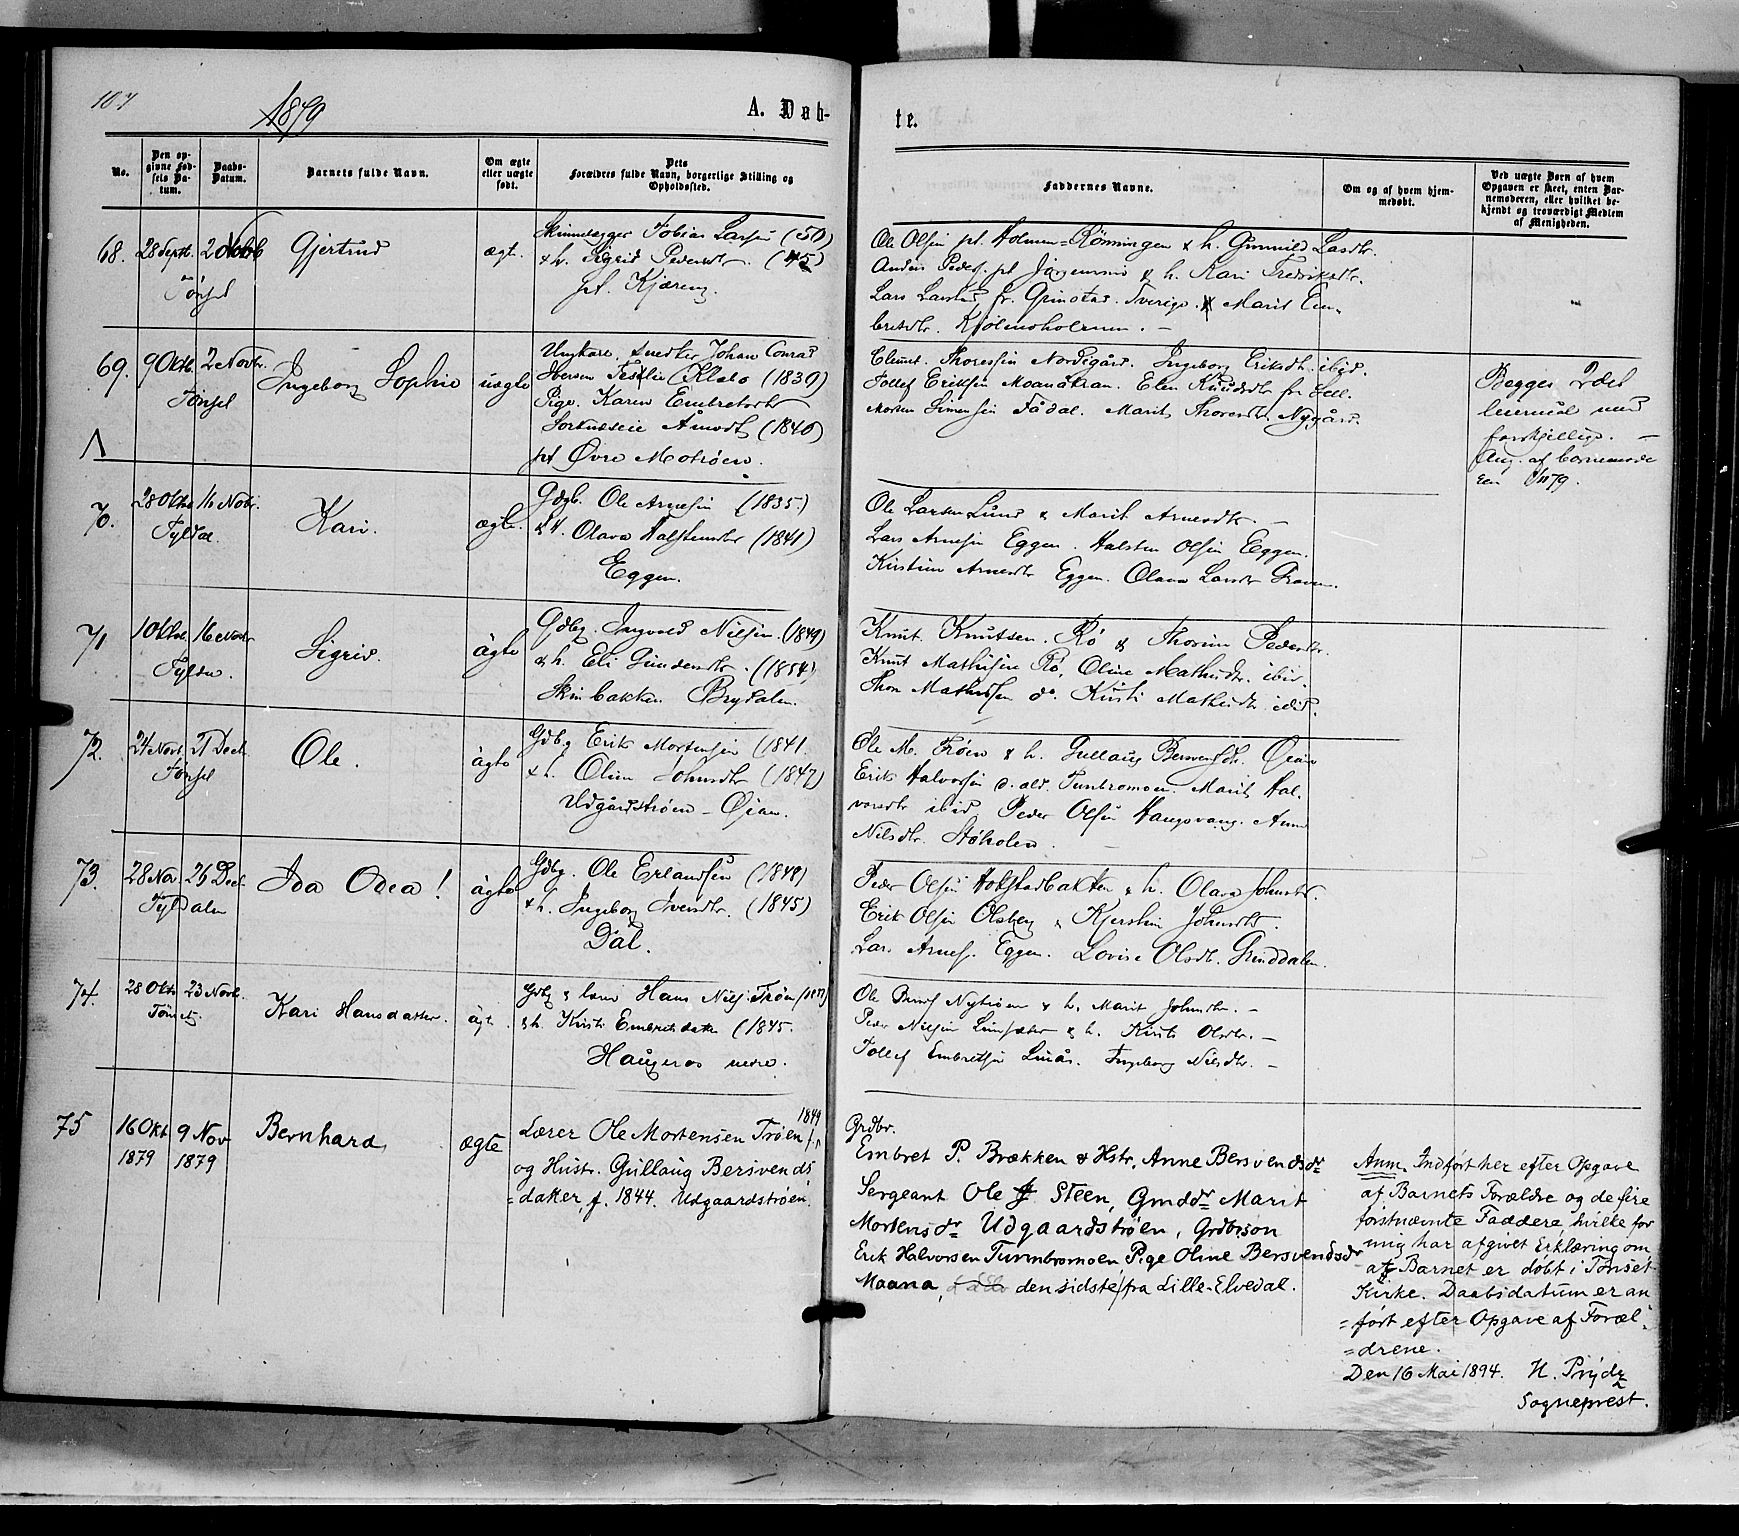 107
1879
A. Døb-
te.
No.
Den op-
givne Fød-
sels Da-
tum.
Daabs-
Datum.
Barnets fulde Navn.
Om ægte
eller uægte
født.
Dets
Forældres fulde Navn, borgerlige Stilling og
Opholdssted.
Faddernes Navne.
Om og af hvem hjem-
medøbt.
Ved uægte Børn af hvem
Opgaven er skeet, enten Bar-
nemoderen, eller hvilket be-
kjendt og troværdigt Medlem
af Menigheden.
68.
28 Septb.
Tönset
2 Novb
Gjertrud
ægt.
Tobias Larsen (50)
& h. Sigrid Pedersdtr. (45)
pt. Kjæreng.
Ole Olsen pt. Holmen-Rönningen & h. Gunnild Larsdtr.
Anders Peders. pt & h. Kari Fredriksdtr.
Lars Larsen fr. Sverige. & Marit Em-
bretsdtr. Kjölmoholmen. -
69.
9 Oktb.
Tönset
2 Novbr.
Ingeborg Sophie
uægte
Ungkarl. Johan Conrad
Iversen Klæbo (1839)
Pige. Karen Embretsdtr
Åmodt (1840)
pt Övre Motröen.
Clemet. Thoresen Nordigård. Ingeborg Eriksdtr. ibid.
Tollef Eriksen Moanåkran. Elen Knudsdtr fr. Lill.
Morten Simensen Fådal. Marit Thoresdtr. Nygård.
Begges 2det
leiermål med
forskjellige. -
Ang. af barnemode
ren
70.
28 Oktb.
Tyldal
16 Novbr.
Kari.
ægte.
Gdbg. Ole Arnesen (1835)
& h. Olava Halstensdtr (1841)
Eggen.
Ole Larsen Lund & Marit Arnesdtr. -
Lars Arnesen Eggen. Halsten Olsen Eggen.
Kirstine Arnesdtr Eggen. Olava Larsdtr
71
1 Oktbr.
Tyldal.
16 Novbr
Sigrid.
ägte
Gdbg. Ingvald Nilsen. (1849)
& h. Eli Simensdtr. (1854)
Brydalen.
Knut. Knutsen. Rö & Thorine Pedersdtr.
Knut Mathisen Rö, Oline Mathisdtr. ibid.
Thor Mathisen do. Kirsti Mathisdtr ibid.
72.
24 Novb
Tönset
21 Decb.
Ole.
ägte
Gdbg Erik Mortensen (1841.
& h. Oline Johnsdtr (1847)
Udgårdströen - Öian.
Ole M. Tröen & h. Gullaug Bersvendsdtr. Öian
Erik Halvorsen Tunbromoen. Marit Hal-
vorsdtr ibid Peder Olsen Haugsvang. Anne
Nilsdtr. Støholen.
73.
28 Nov.
Tyldalen
26 Decb.
Ida Odea!
ägte
Gdbg. Ole Erlandsen (1848)
& h. Ingeborg Iversdtr. (1845)
Dal.
Peder Olsen Hokstadbakken & h. Olava Johnsdtr.
Erik Olsen Olsberg & Kjerstine Johnsdtr.
Lars. Arnes. Eggen. Lovise Olsdtr. Grinddalen.
74.
28 Oktb
Tönset
23 Novb.
Kari Hansdatter.
ägte.
Gdbg & Hans Nils. Tröen
& h. Kirsti Embretsdatter (1845.
Haugeros nedre.
Ole Nytröen & h. Marit Johnsdtr. -
Peder Nilsen & h. Kirsti Olsdtr. -
Tollef Embretsen Ingeborg Nilsdtr. -
75
16 Okt
1879
9 Nov
1879
Bernhard
ægte
1849
Lærer Ole Mortensen Tröen f.
og Hustr. Gullaug Bersvends
=datter, f. 1844. Udgaardströen.
Grdbr.
Embret P. Brækken & Hstr, Anne Bersvendsdr
Sergeant Ole J Steen, Gmddr Marit
Mortensdr Udgaardströen, Grdbrsön
Erik Halvorsen Tunnbromoen Pige Oline Bersvendsdr
Maana, den sidste fra Lille-Elvedal.
Anm. Indført her efter Opgave
af Barnets Forældre og de fire
førstnævnte Faddere, hvilke for
mig har afgivet Erklæring om,
at Barnet er døbt i Tönset
Kirke. Daabsdatum er an
=ført efter Opgave af Foræl-
=drene.
Den 16 Mai 1894. H. Prydz
Sogneprest.